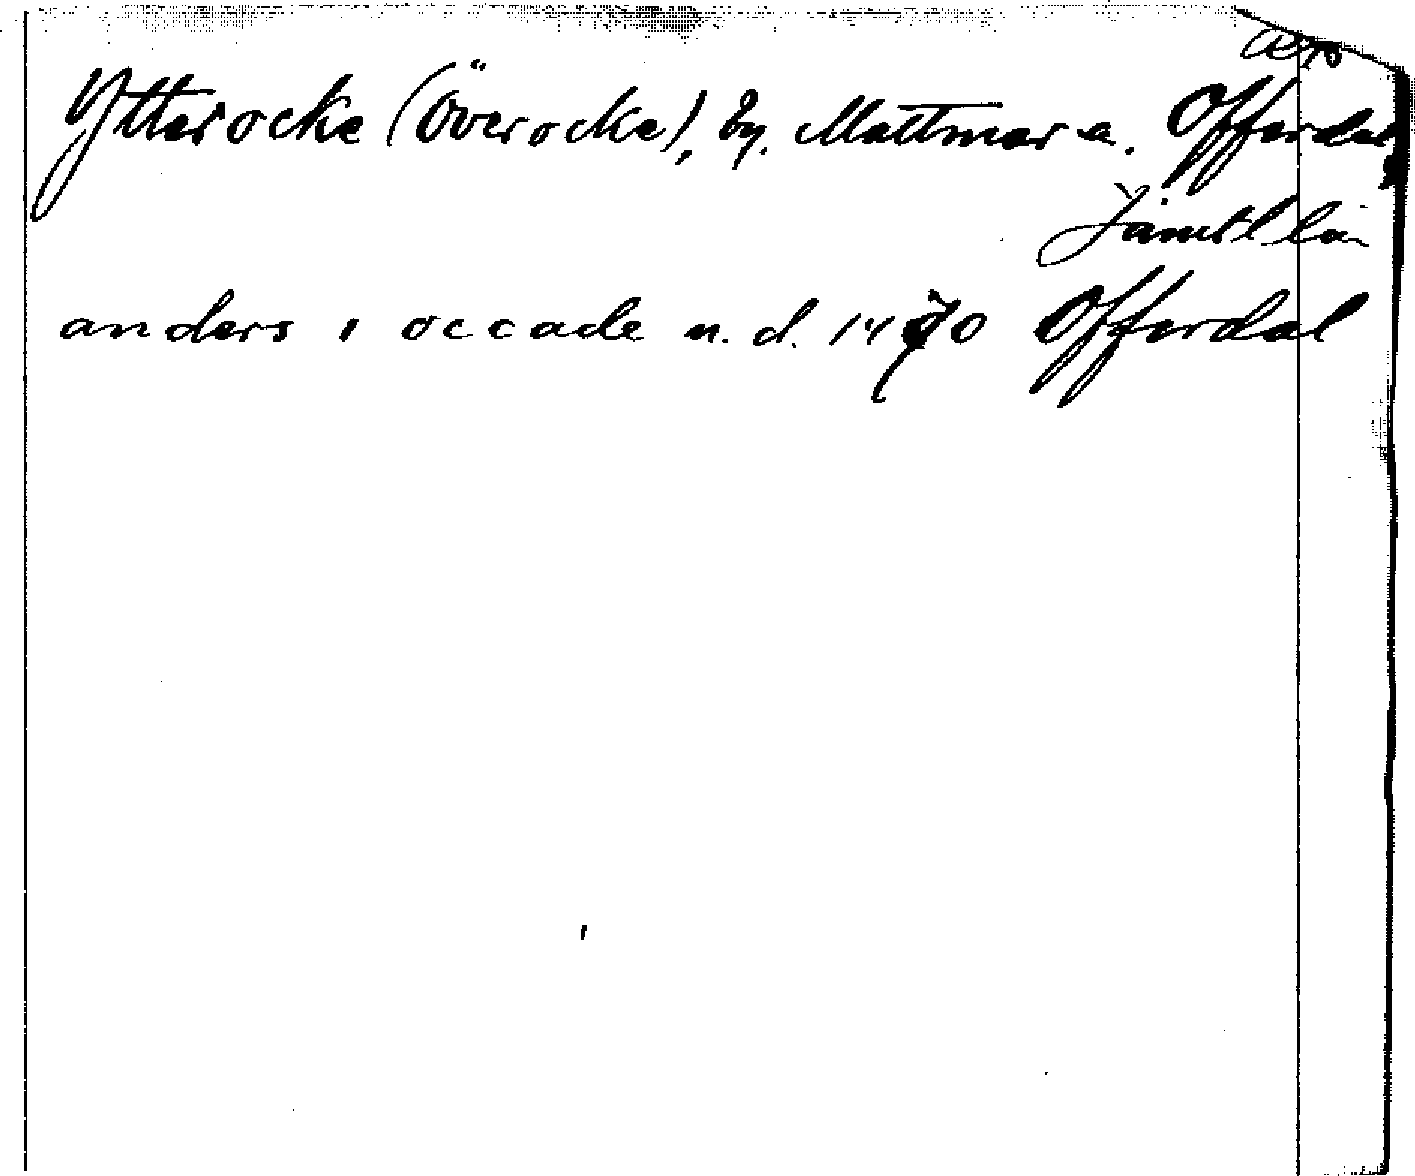 Ytterocke (Överocke), by. Mattmar s. Offerdal
Jämtl län
anders i occade n.d. 1470 Offerdal